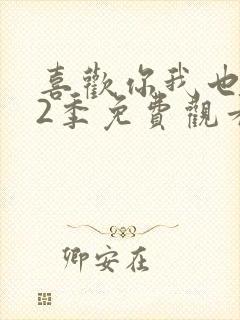 喜歡你我也
2季免費觀
卿安在